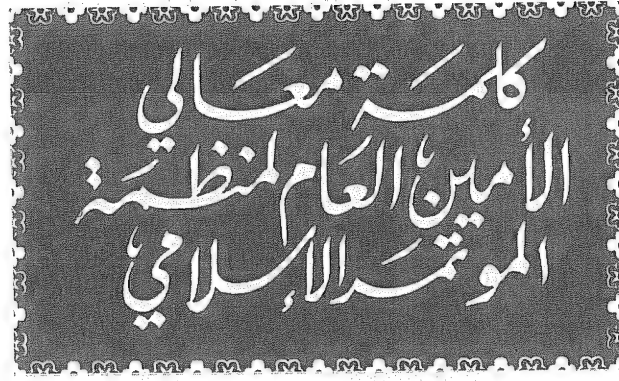 كلمة معالي
الأمين العام لمنظمة
الموتمر الإسلامي